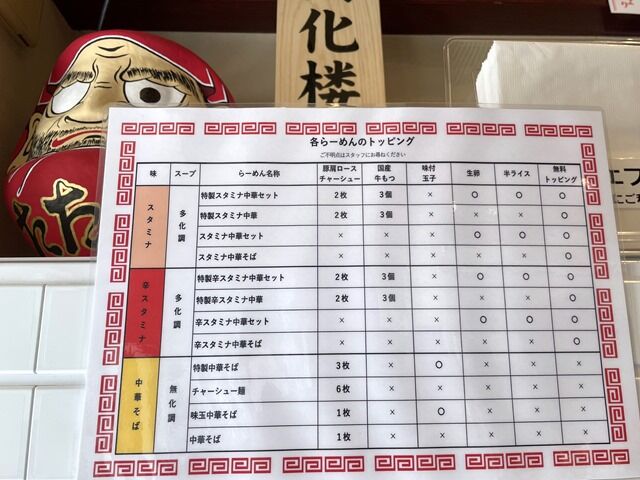 化楼
各らーめんのトッピング
ご不明点はスタッフにお尋ねください
味 スープ らーめん名称 豚肩ロースチャーシュー 国産牛もつ 味付玉子 生卵 半ライス 無料トッピング
スタミナ 多化調 特製スタミナ中華セット 2枚 3個 × ○ ○ ○
特製スタミナ中華 2枚 3個 × × × ○
スタミナ中華セット × × × ○ ○ ○
スタミナ中華そば × × × × × ○
辛スタミナ 多化調 特製辛スタミナ中華セット 2枚 3個 × ○ ○ ○
特製辛スタミナ中華 2枚 3個 × × × ○
辛スタミナ中華セット × × × ○ ○ ○
辛スタミナ中華そば × × × × × ○
中華そば 無化調 特製中華そば 3枚 × ○ × × ×
チャーシュー麺 6枚 × × × × ×
味玉中華そば 1枚 × ○ × × ×
中華そば 1枚 × × × × ×